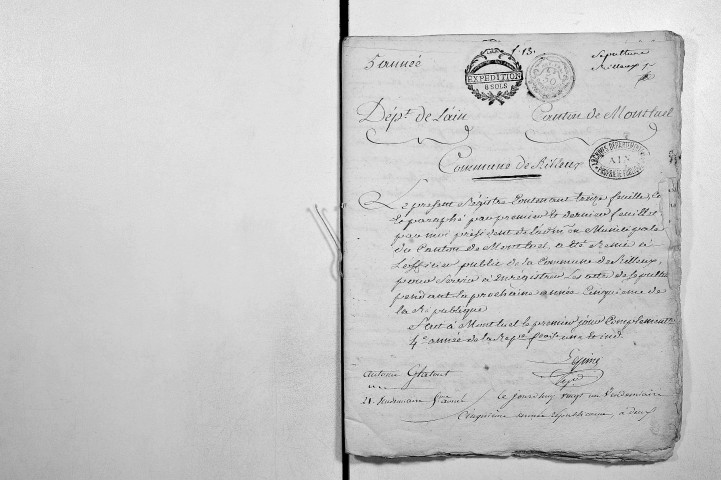 5 année
f. 13.
Sepulture
Rillieux
EXPEDITION
8 SOLS
Dépt. de L'ain
Canton de Montluel
ARCHIVES DEPARTEMENTALES
AIN
Commune de Rillieux
Le present Registre Contenant treize feuillets, Cote
Et paraphé par premier Et dernier feuillet
par moi president de L'adm.on Municipale
du Canton de Montluel, a été Remis à
L'officier public de la Commune de Rillieux,
pour Servir à Enregistrer Les actes de Sepulture
pendant la prochaine année Cinquieme de
la Republique
fait à Montluel le premier jour Complementaire
4e année de la Rep.que une Et ind.
antoine
21 Vendemiaire 5eme année
Ce jourd'huy vingt un Vendemiaire
Cinquième année republicaine, à deux